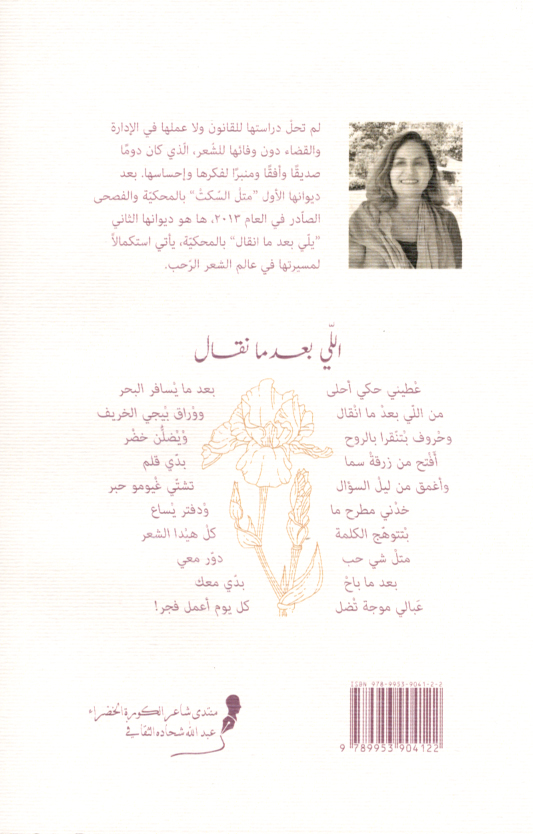 لم تحلّ دراستها للقانون ولا عملها في الإدارة
والقضاء دون وفائها للشّعر، الّذي كان دومًا
صديقًا وأفقًا ومنبرًا لفكرها وإحساسها. بعد
ديوانها الأول "متلّ السّكتْ" بالمحكيّة والفصحى
الصّادر في العام ٢٠١٣، ها هو ديوانها الثاني
"يلّي بعد ما انقال" بالمحكيّة، يأتي استكمالاً
لمسيرتها في عالم الشعر الرّحب.
اللّي بعد ما نقال
عْطيني حكي أحلى
من اللّي بعدْ ما انْقال
وحْروف بْتنْقرا بالروح
أفْتح من زرقةْ سما
وأغمق من ليلْ السؤال
خدْني مطرح ما
بْتتوهّج الكلمة
متلْ شي حب
بعد ما باحْ
عَبالي موجة تْضل
بعد ما يْسافر البحر
ووْراق بْيجي الخريف
وْيْضلُّن خضْر
بدّي قلم
تشتّي غْيومو حبر
وْدفتر يْساع
كلّ هيْدا الشعر
دوّر معي
بدّي معك
كل يوم أعمل فجر!
منتدى شاعر الكورة الخضراء
عبد الله شحاده الثقافي
ISBN 978-9953-9041-2-2
9 789953 904122